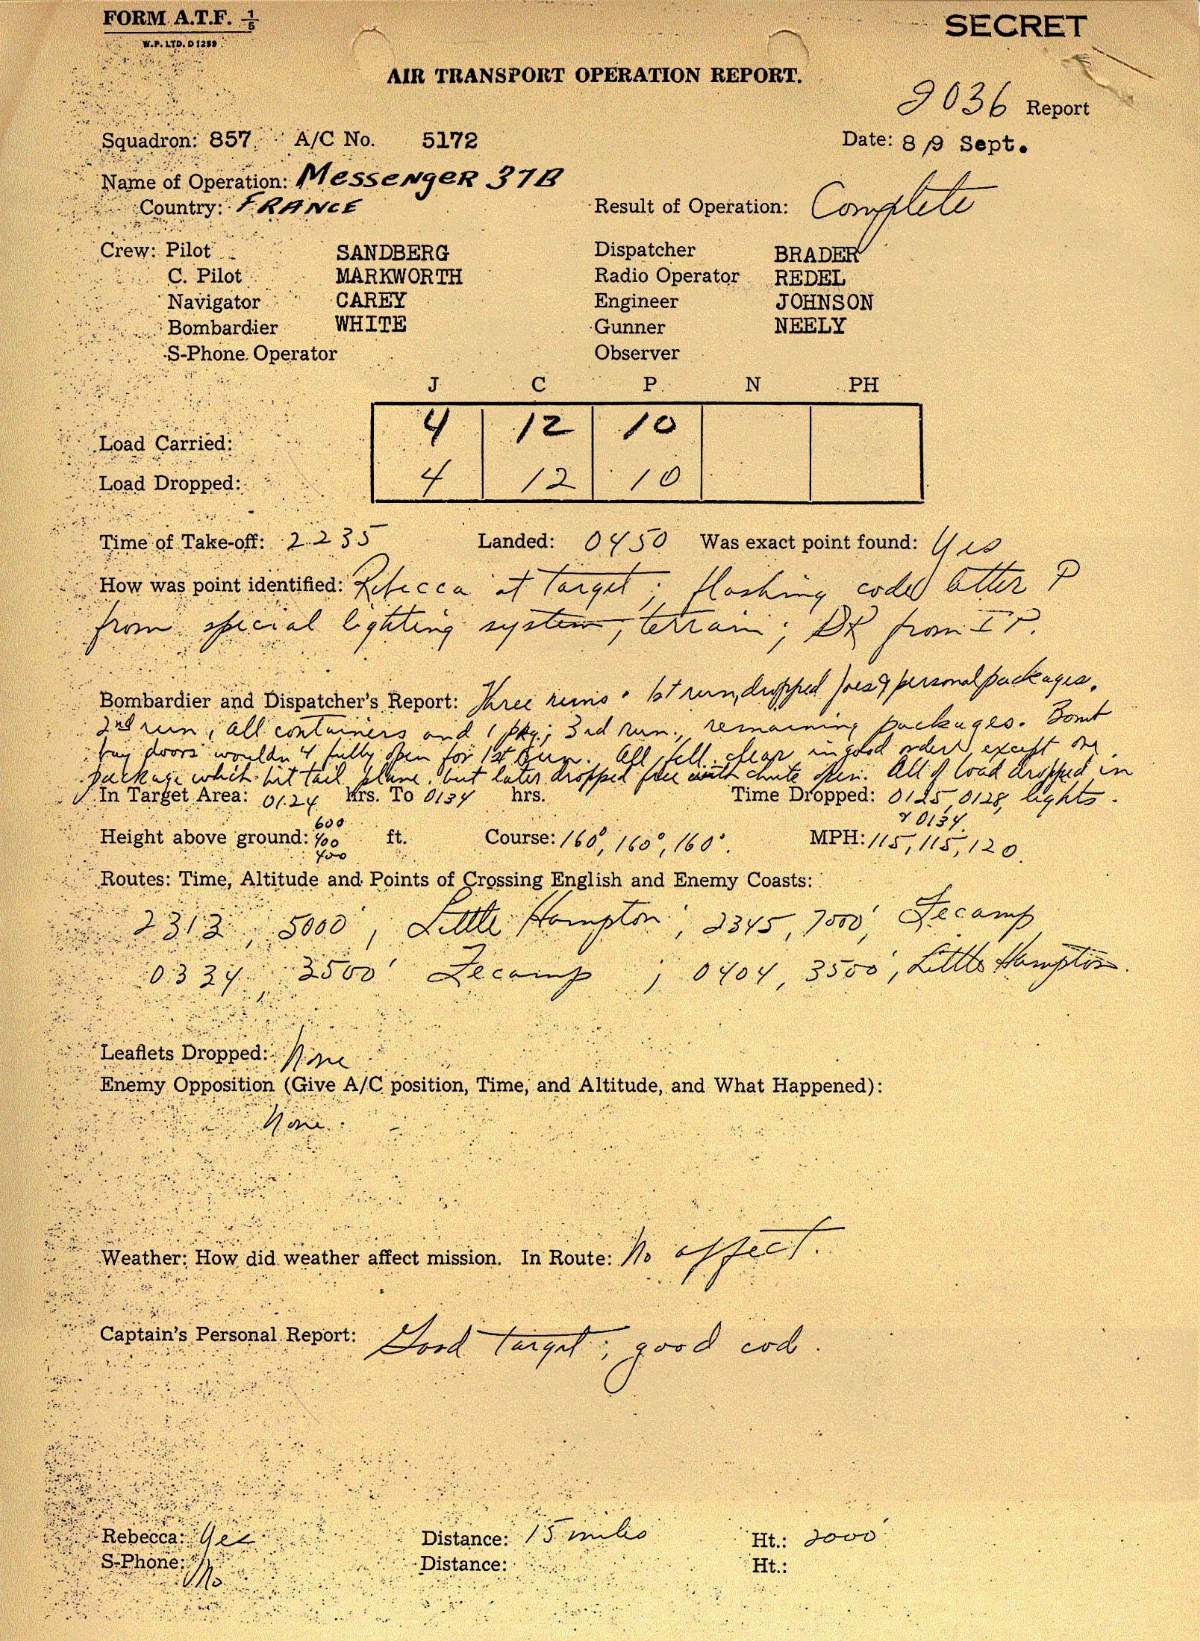 FORM A.T.F. 1/5
W.P. LTD. D1299
SECRET
AIR TRANSPORT OPERATION REPORT.
2036 Report
Squadron: 857 A/C No. 5172 Date: 8/9 Sept.
Name of Operation: Messenger 37B
Country: FRANCE Result of Operation: Complete
Crew: Pilot SANDBERG Dispatcher BRADER
C. Pilot MARKWORTH Radio Operator REDEL
Navigator CAREY Engineer JOHNSON
Bombardier WHITE Gunner NEELY
S-Phone Operator Observer
J C P N PH
Load Carried: 4 12 10
Load Dropped: 4 12 10
Time of Take-off: 2235 Landed: 0450 Was exact point found: Yes
How was point identified: Rebecca at target; flashing coded letter P
from special lighting system, terrain; DR from IP.
Bombardier and Dispatcher's Report: Three runs. 1st run, dropped Joes & personal packages.
2nd run, all containers and 1 pkg; 3rd run, remaining packages. Bomb
bay doors wouldn't fully open for 1st run. All fell clear in good order, except one
package which hit tail plane but later dropped free with chute open. All of load dropped in
In Target Area: 0124 hrs. To 0134 hrs. Time Dropped: 0125, 0128, lights.
& 0134.
600
Height above ground: 400 ft. Course: 160°, 160°, 160°. MPH: 115, 115, 120.
400
Routes: Time, Altitude and Points of Crossing English and Enemy Coasts:
2313, 5000', Little Hampton; 2345, 7000', Fecamp
0334, 3500' Fecamp ; 0404, 3500', Little Hampton.
Leaflets Dropped: None
Enemy Opposition (Give A/C position, Time, and Altitude, and What Happened):
None.
Weather: How did weather affect mission. In Route: No affect.
Captain's Personal Report: Good target; good cod.
Rebecca: Yes Distance: 15 miles Ht.: 2000'
S-Phone: No Distance: Ht.: